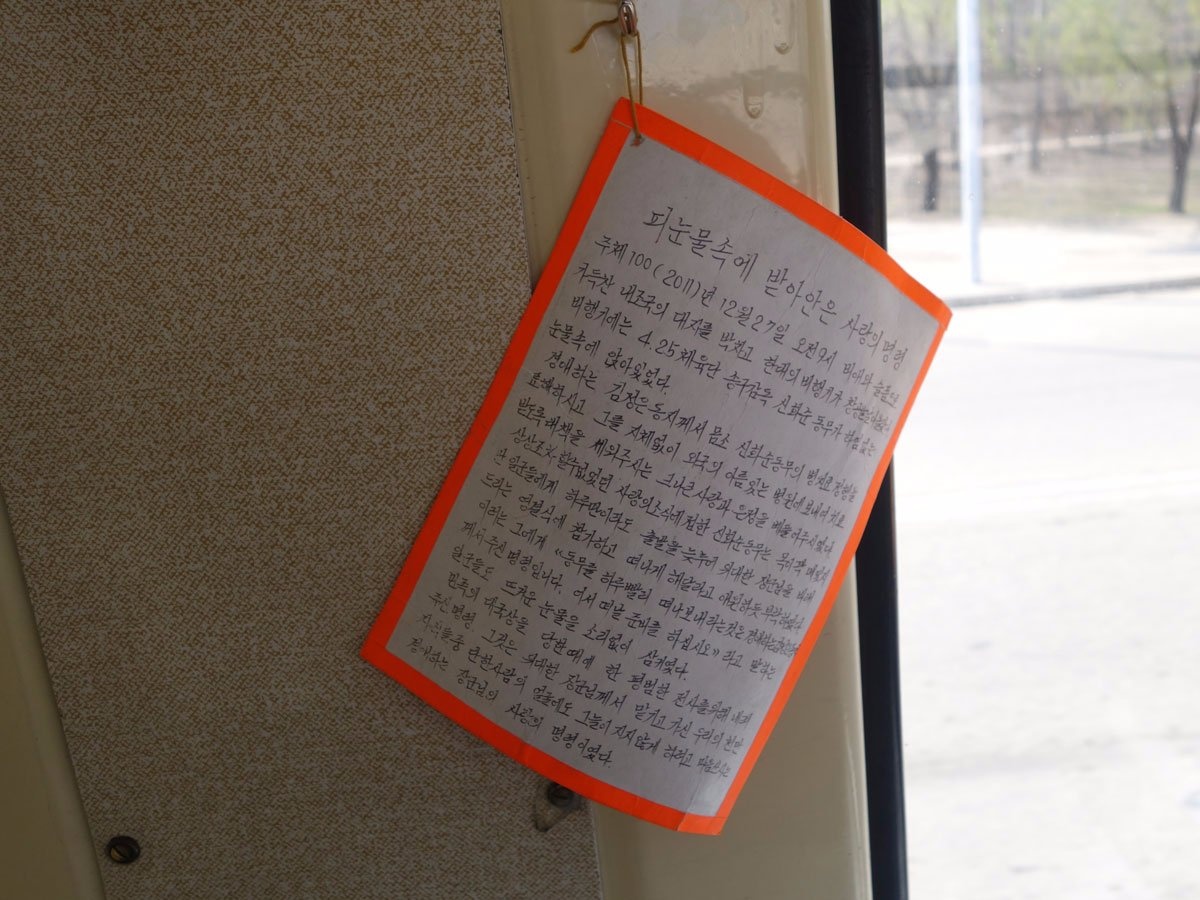 피눈물속에 받아안은 사랑의 명령
주체 100(2011)년 12월 27일 오전 9시 비애와 슬픔만
가득찬 내조국의 대지를 박차고 한대의 비행기가
비행기에는 4.25체육단 송구감독 신화순동무가 하염없는
눈물속에 앉아있었다.
경애하는 김정은동지께서 몸소 신화순동무의 병치료정형을
료해하시고 그를 지체없이 외국의 이름있는 병원에 보내여 치료
받도록 대책을 세워주시는 크나큰 사랑과 은정을 베풀어주시였다.
상상조차 할수 없었던 사랑의 소식에 접한 신화순동무는 목이 꽉 메여
일군들에게 하루만이라도 출발을 늦추어 위대한 장군님을
드리는 영결식에 참가하고 떠나게 해달라고 애원하듯 부탁하였다.
이러는 그에게 《동무를 하루빨리 떠나보내라는것은
께서 주신 명령입니다. 어서 떠날 준비를 하십시오》라고 말하는
일군들도 뜨거운 눈물을 소리없이 삼키였다.
민족의 대국상을 당한 때에 한 평범한 전사를 위해
주신 명령 그것은 위대한 장군님께서 맡기고 가신 우리의 천만
자식들중 단 한사람의 얼굴에도 그늘이 지지 않게 하려고 마음쓰시는
경애하는 장군님의 사랑의 명령이였다.